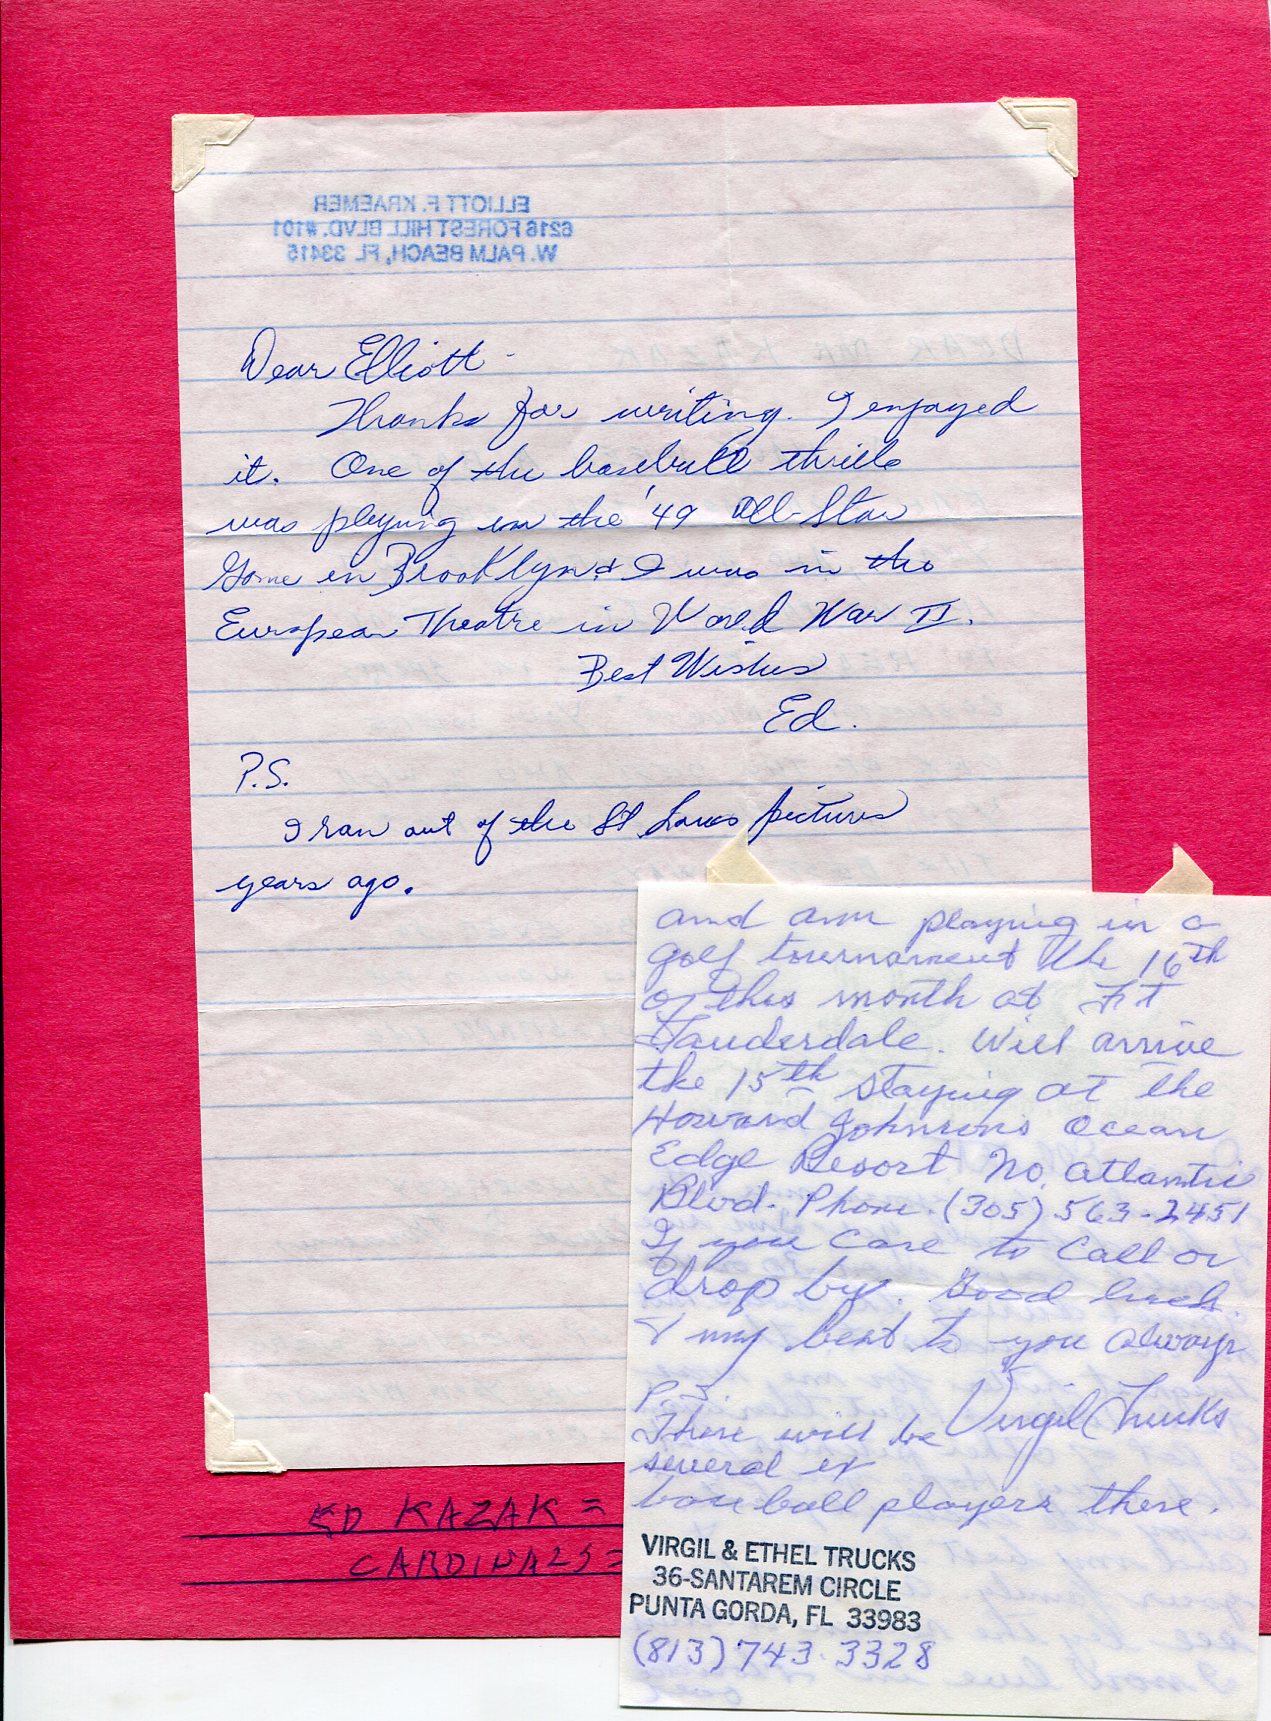 ELLIOTT F. KRAEMER
6216 FOREST HILL BLVD. #101
W. PALM BEACH, FL 33415
Dear Elliott
Thanks for writing. I enjoyed
it. One of the baseball thrills
was playing in the '49 All-Star
Game in Brooklyn & I was in the
European Theatre in World War II.
Best Wishes
Ed.
P.S.
I ran out of the St Louis pictures
years ago.
ED KAZAK =
CARDINALS =
and am playing in a
golf tournament the 16th
of this month at Ft
Lauderdale. Will arrive
the 15th staying at the
Howard Johnsons Ocean
Edge Resort No. Atlantic
Blvd. Phone. (305) 563-2451
If you care to call or
drop by. Good luck.
& my best to you always
Virgil Trucks
P.S.
There will be
several ex
baseball players there.
VIRGIL & ETHEL TRUCKS
36-SANTAREM CIRCLE
PUNTA GORDA, FL 33983
(813) 743-3328